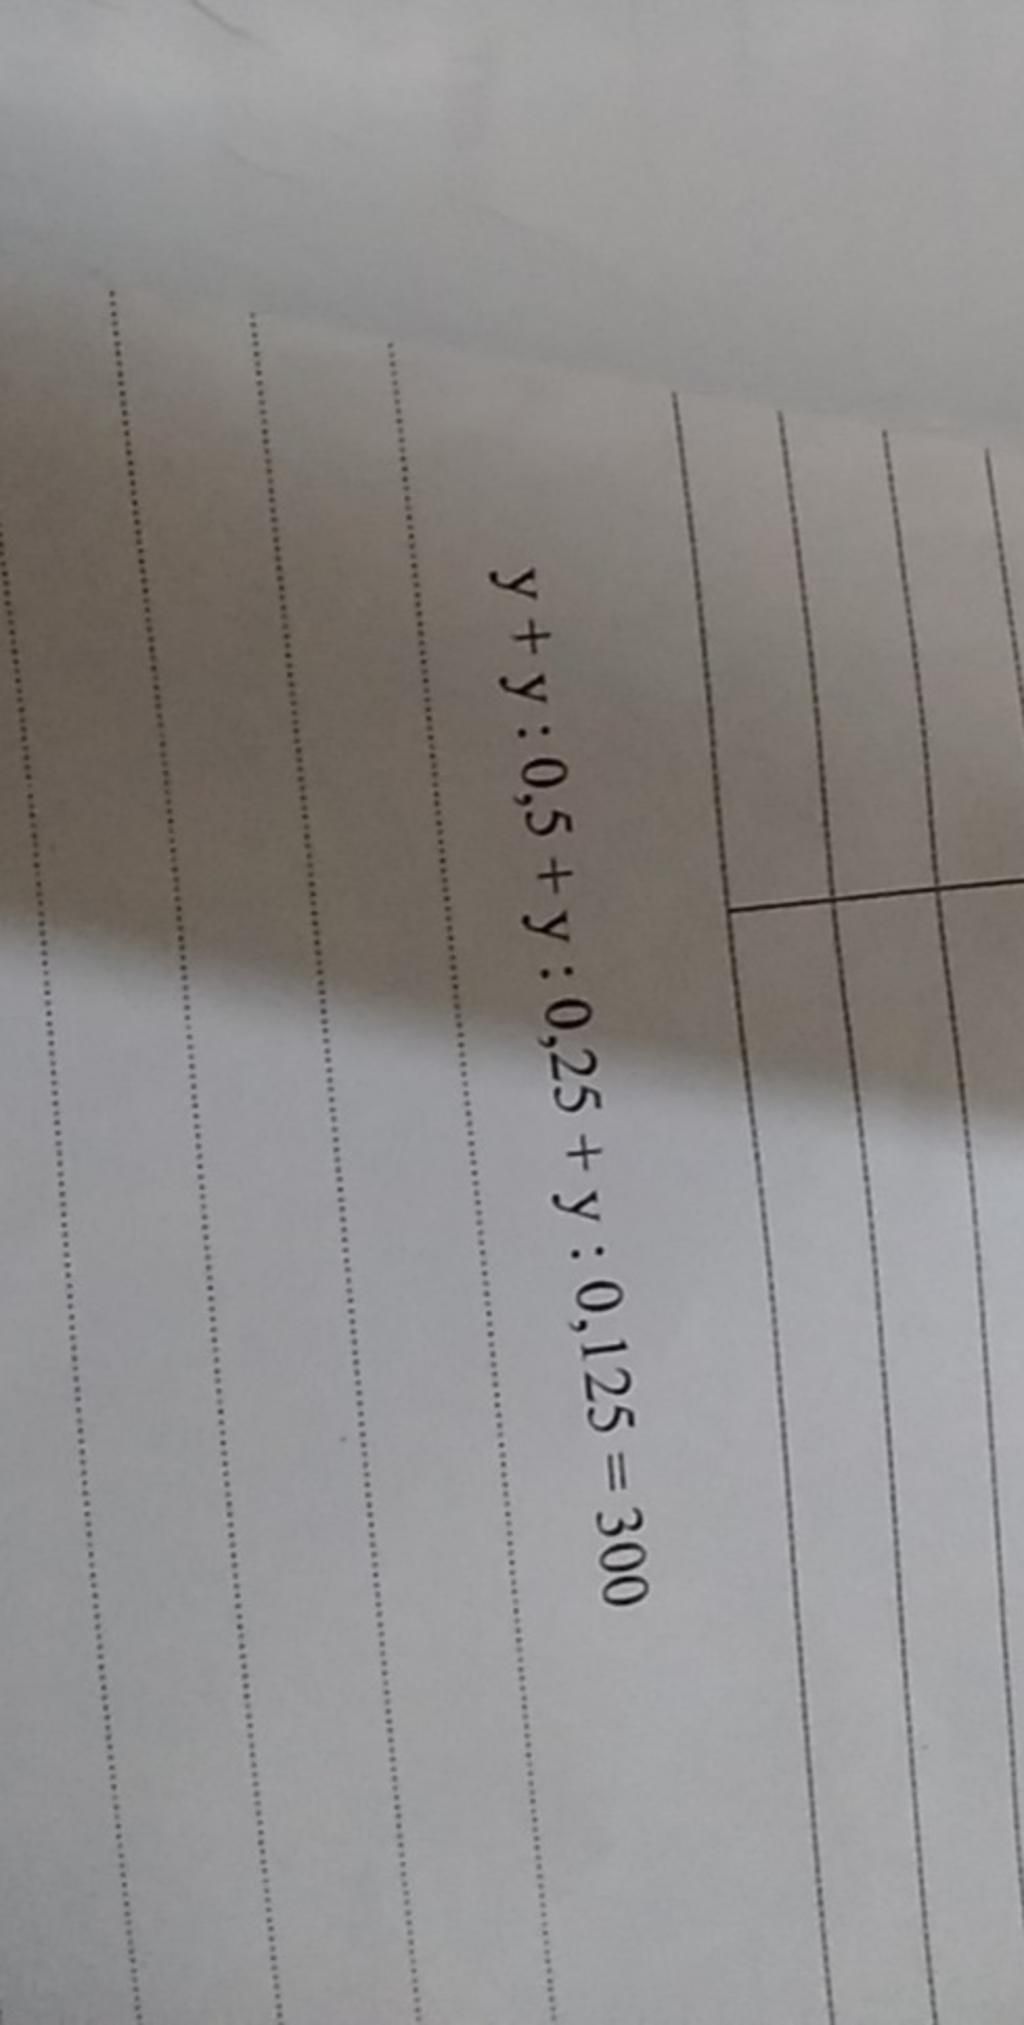 y + y : 0,5 + y : 0,25 + y : 0,125 = 300